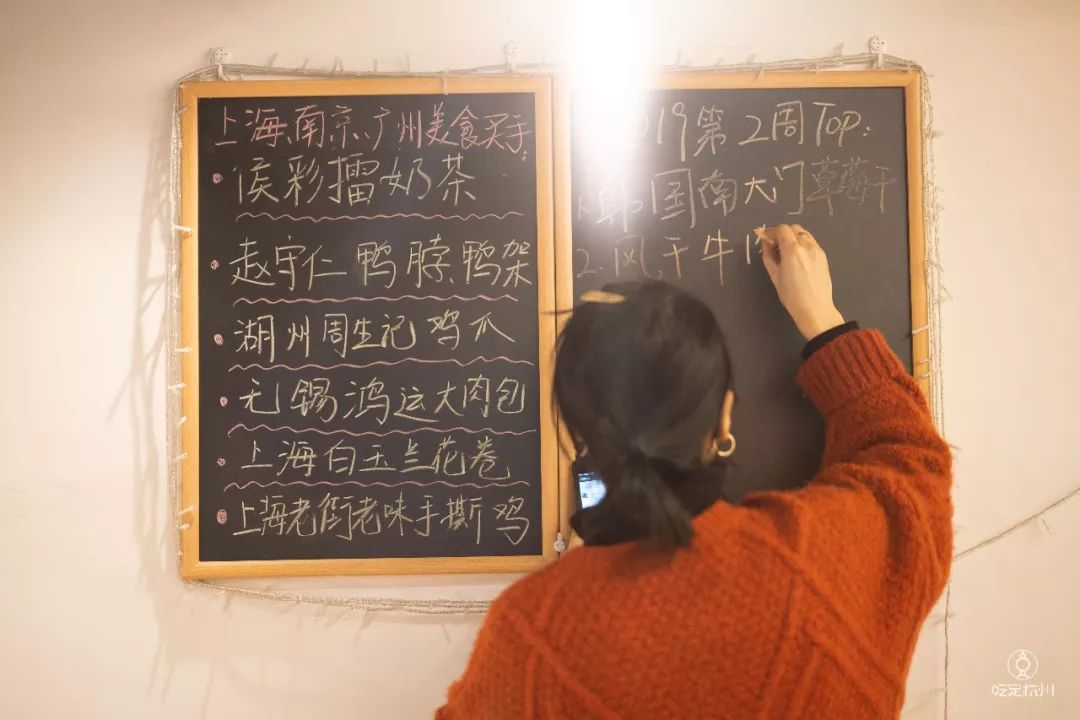 上海、南京、广州美食买手:
侯彩擂奶茶
赵守仁鸭脖、鸭架
湖州周生记鸡爪
无锡鸿运大肉包
上海白玉兰花卷
上海老街老味手撕鸡
019第2周Top:
1.韩国南大门草莓干
2.风干牛
吃定杭州